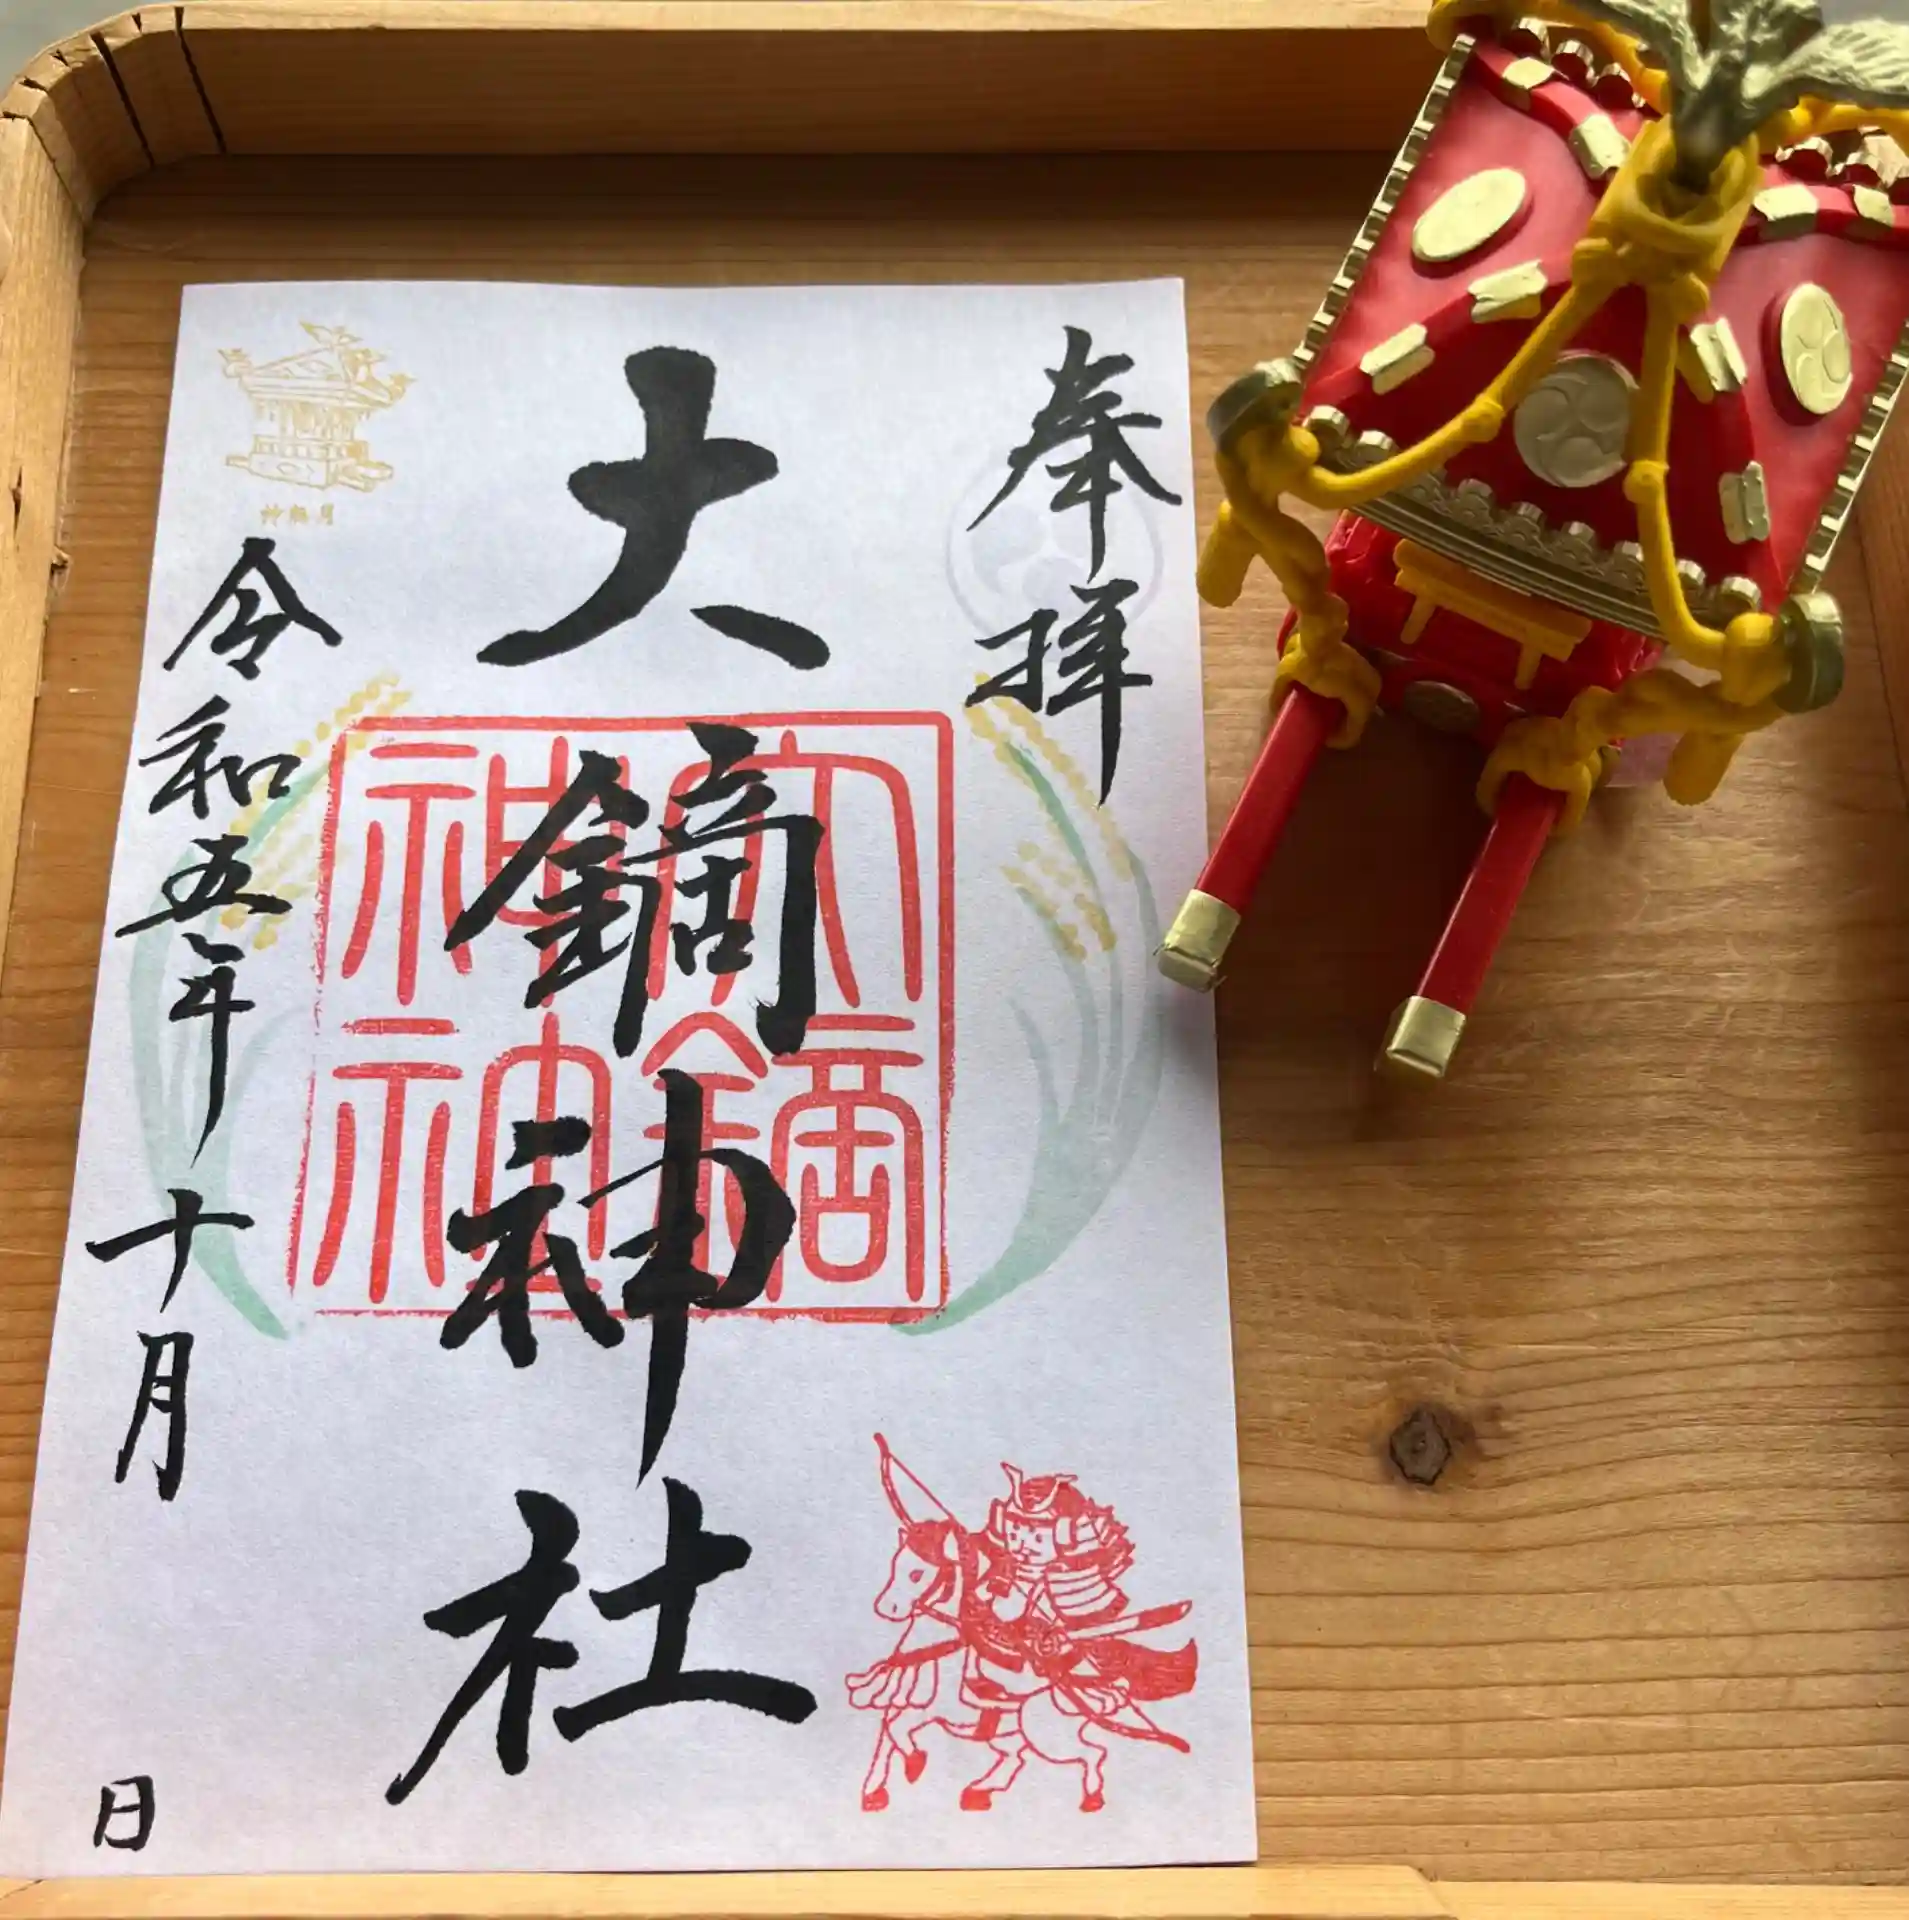 奉拝
大鏑神社
大鏑
神社
令和五年十月 日